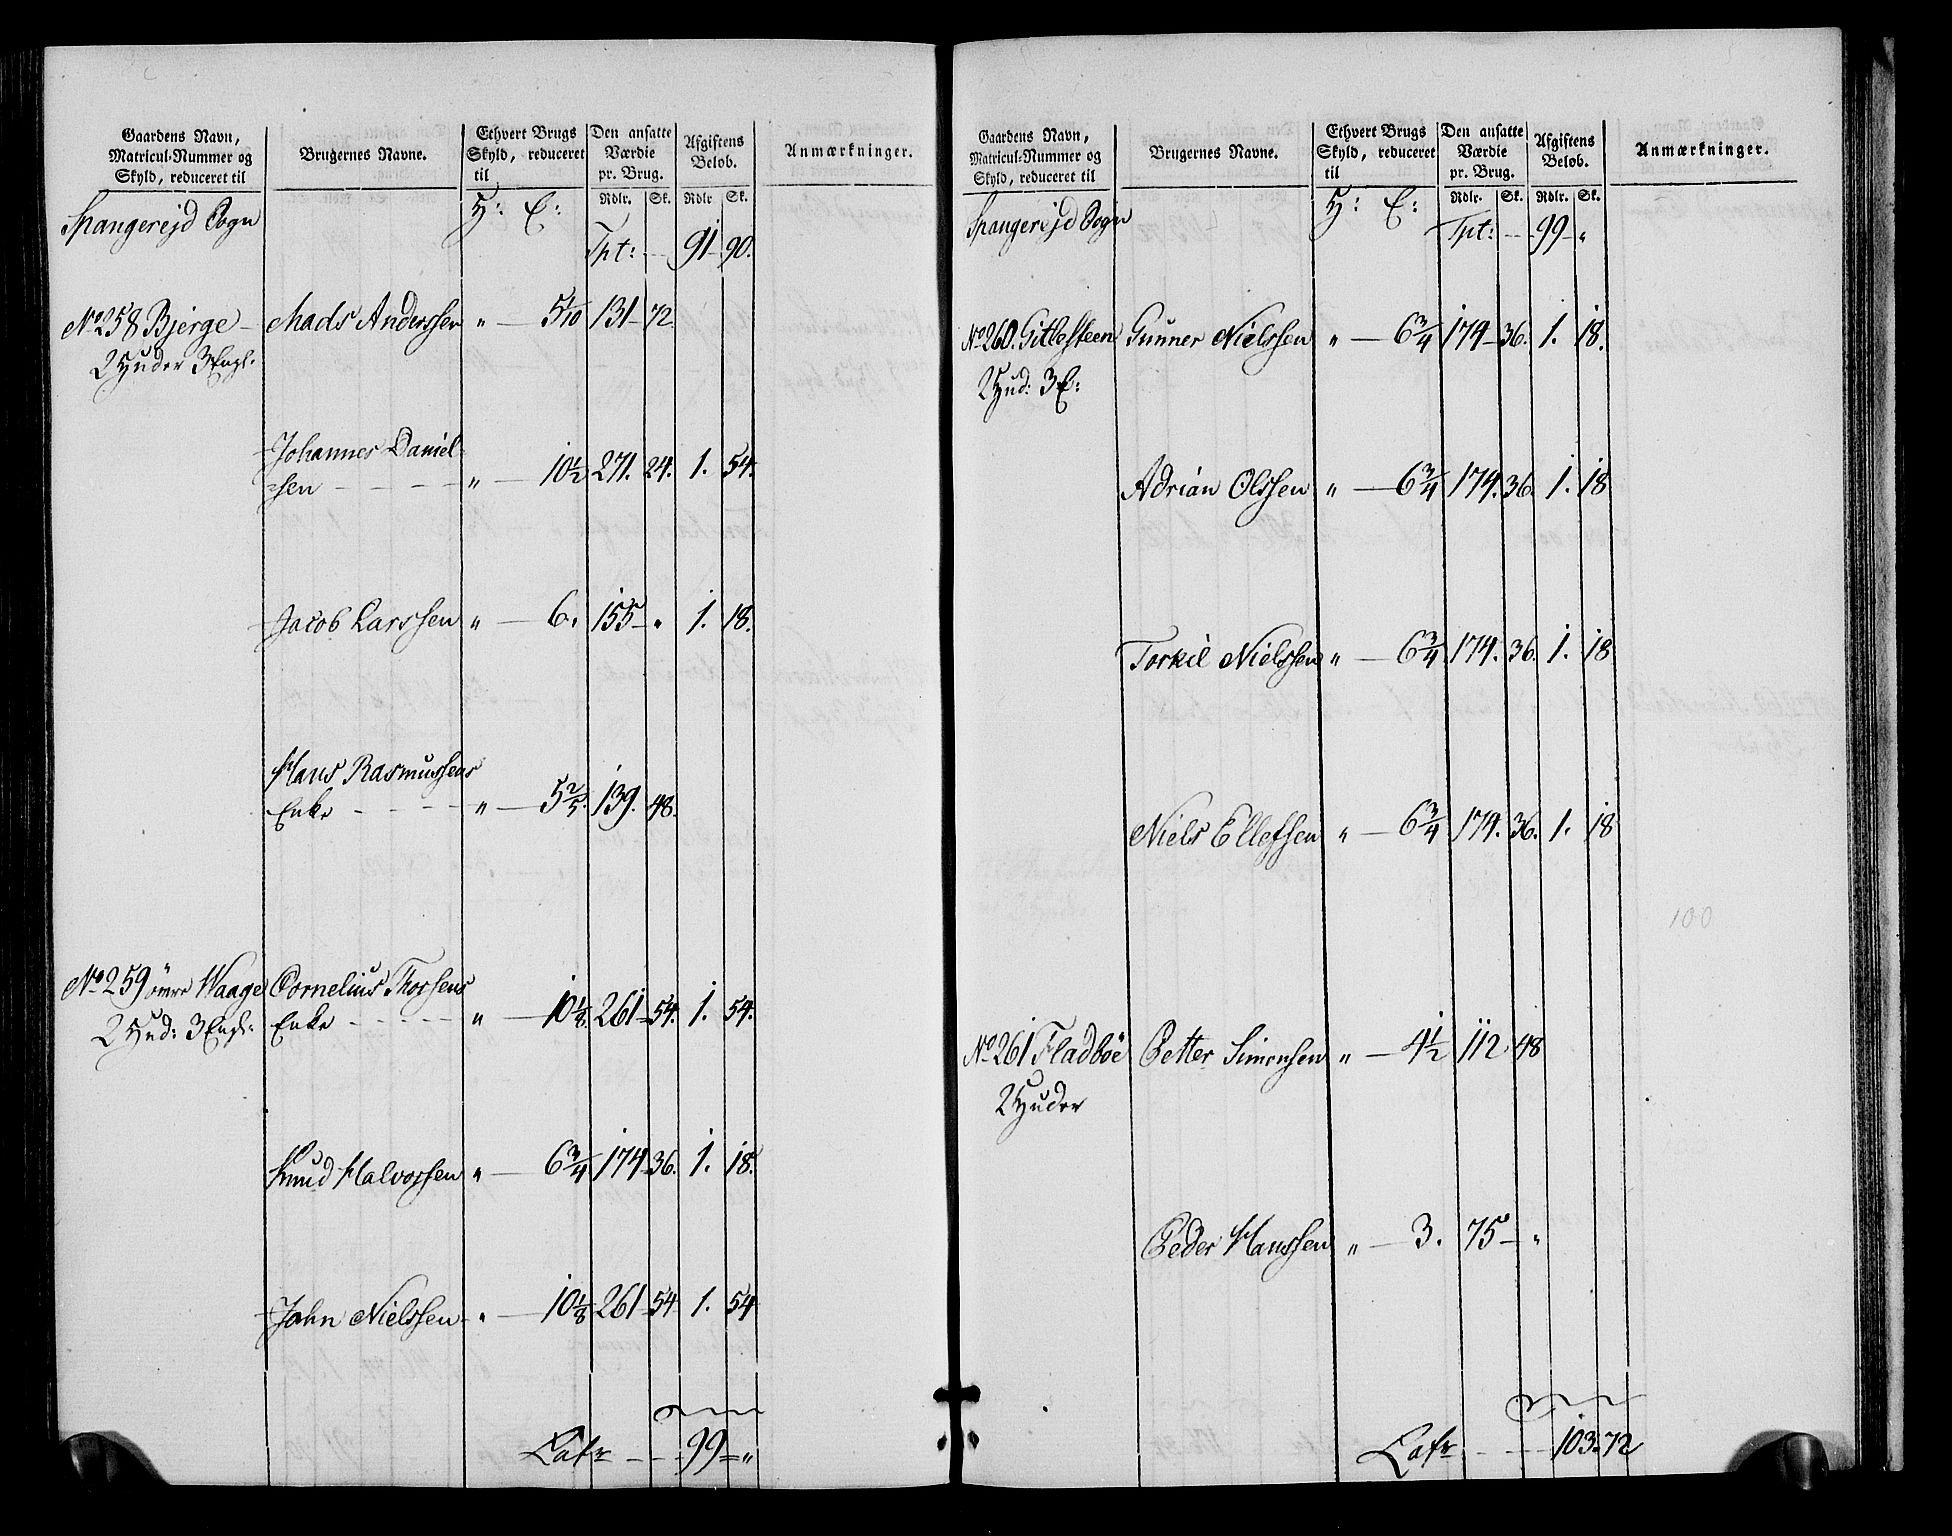 Gaardens Navn, Matricul-Nummer og Skyld, reduceret til | Brugernes Navne. | Ethvert Brugs Skyld, reduceret til | Den ansatte Værdie pr. Brug. | Afgiftens Beløb. | Anmærkninger.
H: E: Rdlr. Sk. Rdlr Sk.
Spangerejd Sogn
Tpt: - - 91 - 90.
No 258 Bjerge - Mads Anderssen „ - 5 1/10 131 - 72.
2 Huder 3 Engl:
Johannes Daniel-
-sen - - - - „ - 10 1/2 271. 24. 1. 54.
Jacob Larssen „ - 6. 155 - „ 1. 18.
Hans Rasmussens
Enke - - - - „ - 5 2/5. 139. 48.
No 259 öwre Waage Cornelius Thorsens
2 Hud: 3 Engl: Enke - - - - „ - 10 1/8. 261 - 54. 1. 54.
Knud Halvorsen „ - 6 3/4 174 - 36. 1. 18.
John Nielssen - „ - 10 1/8 261 - 54 1. 54
Latr - - - 99 = „
Gaardens Navn, Matricul-Nummer og Skyld, reduceret til | Brugernes Navne. | Ethvert Brugs Skyld, reduceret til | Den ansatte Værdie pr. Brug. | Afgiftens Beløb. | Anmærkninger.
H: E: Rdlr. Sk. Rdlr. Sk.
Spangerejd Sogn
Tpt: - - 99 - „
No 260. Gitlesteen Gunner Nielssen „ - 6 3/4 174 - 36. 1. 18.
2 Hud: 3 E:
Adrian Olssen „ - 6 3/4 174. 36. 1. 18
Torkil Nielssen „ - 6 3/4 174. 36. 1. 18
Niels Ellefsen „ - 6 3/4 174. 36. 1. 18
100
No 261 Fladböe Petter Simonsen „ - 4 1/2 112 48
2 Huder
Peder Hanssen „ - 3. 75 - „
Latr - - - 103 - 72